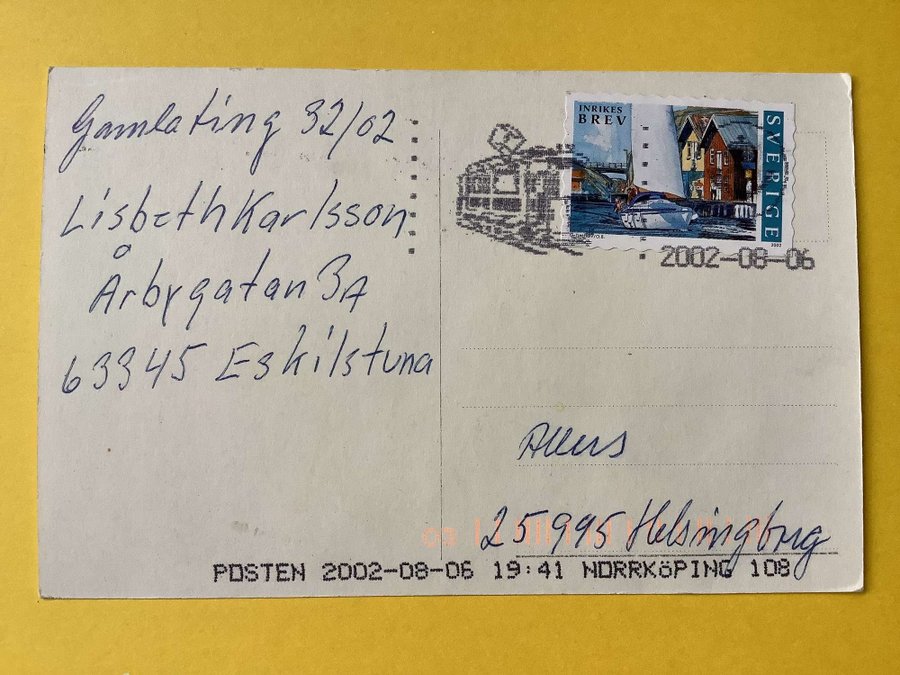 Gamlating 32/02
Lisbeth Karlsson
Årbygatan 3A
63345 Eskilstuna
INRIKES
BREV
SVERIGE
2002
2002-08-06
Allers
25995 Helsingborg
POSTEN 2002-08-06 19:41 NORRKÖPING 108